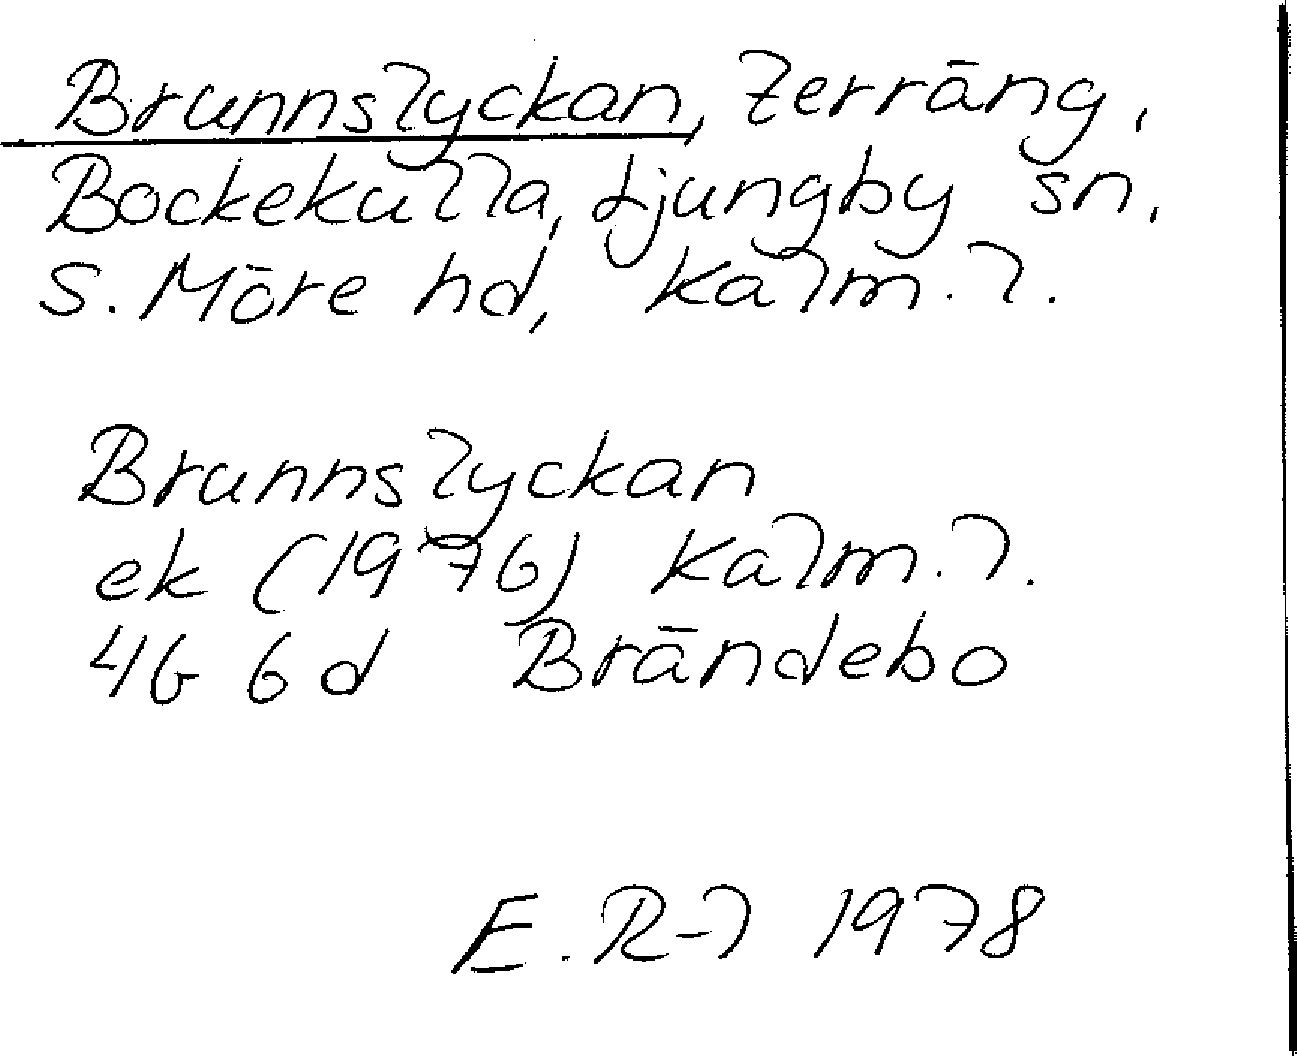 Brunnslyckan, terräng,
Bockekulla, Ljungby sn,
S. Möre hd, Kalm. l.
Brunnslyckan
ek (1976) Kalm. l.
4G 6d Brändebo
E. R-l 1978